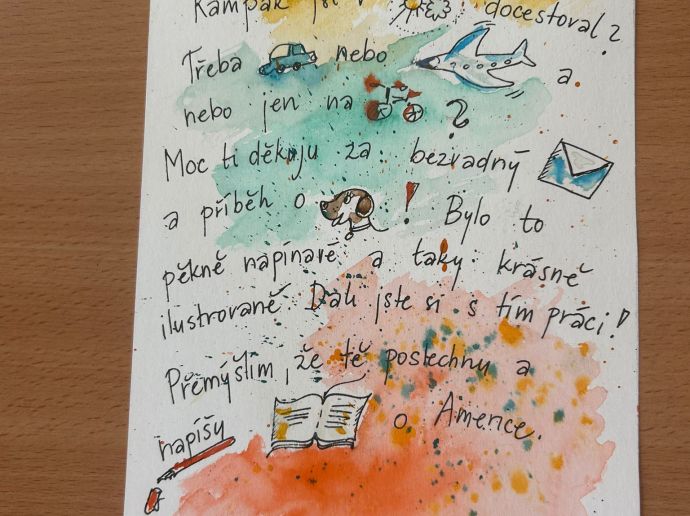 Kampak docestoval?
Třeba nebo a
nebo jen na ?
Moc ti děkuju za bezvadný
a příběh o ! Bylo to
pěkně napínavé a taky krásně
ilustrované. Dali jste si s tím práci!
Přemýšlím, že tě poslechnu a
napíšu o Americe.